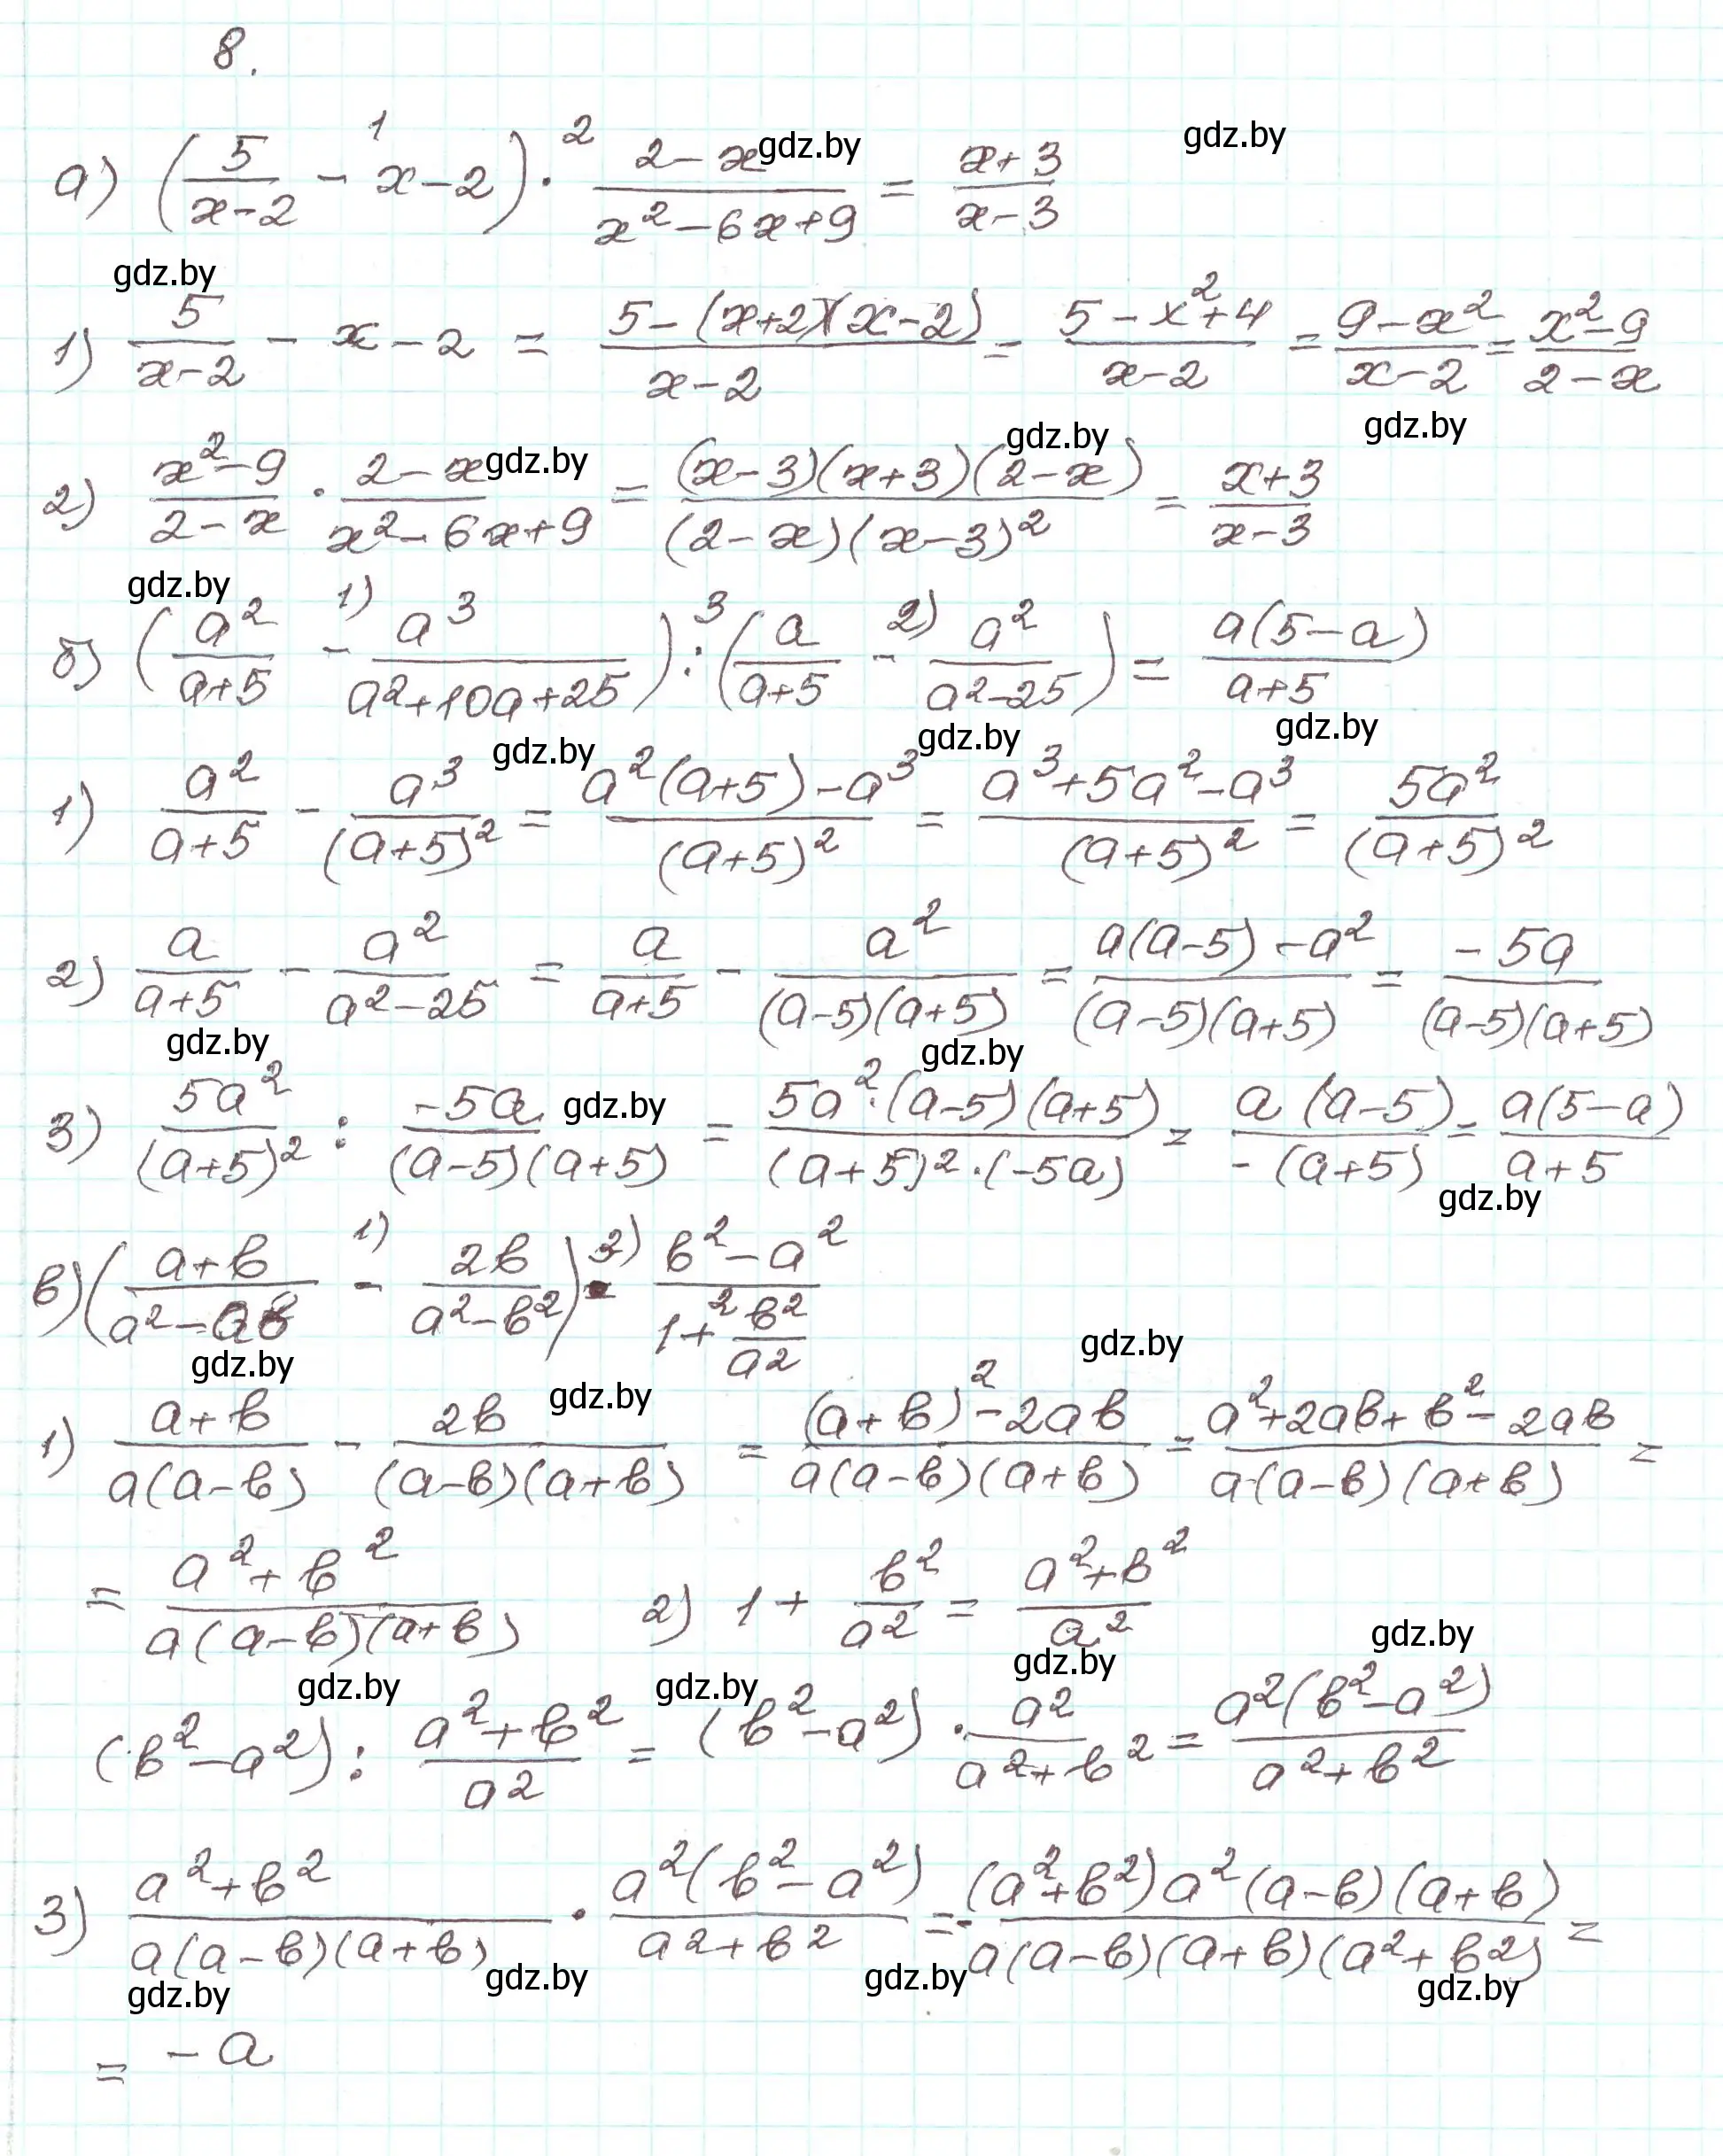 8.
а) (5/(x-2) -¹ x-2) ·² (2-x)/(x²-6x+9) = (x+3)/(x-3)
gdz.by gdz.by
gdz.by
1) 5/(x-2) - x - 2 = (5-(x+2)(x-2))/(x-2) = (5-x²+4)/(x-2) = (9-x²)/(x-2) = (x²-9)/(2-x)
gdz.by gdz.by gdz.by
2) (x²-9)/(2-x) · (2-x)/(x²-6x+9) = ((x-3)(x+3)(2-x))/((2-x)(x-3)²) = (x+3)/(x-3)
gdz.by
б) (a²/(a+5) -¹⁾ a³/(a²+10a+25)) :³ (a/(a+5) -²⁾ a²/(a²-25)) = a(5-a)/(a+5)
gdz.by gdz.by gdz.by
1) a²/(a+5) - a³/(a+5)² = (a²(a+5)-a³)/(a+5)² = (a³+5a²-a³)/(a+5)² = 5a²/(a+5)²
2) a/(a+5) - a²/(a²-25) = a/(a+5) - a²/((a-5)(a+5)) = (a(a-5)-a²)/((a-5)(a+5)) = -5a/((a-5)(a+5))
gdz.by gdz.by
3) 5a²/(a+5)² : -5a/((a-5)(a+5)) = (5a²·(a-5)(a+5))/((a+5)²·(-5a)) = a(a-5)/-(a+5) = a(5-a)/(a+5)
gdz.by gdz.by
в) ((a+в)/(a²-aв) -¹⁾ 2в/(a²-в²)) ·³⁾ (в²-a²)/(1+² в²/a²)
gdz.by gdz.by gdz.by
1) (a+в)/(a(a-в)) - 2в/((a-в)(a+в)) = ((a+в)²-2aв)/(a(a-в)(a+в)) = (a²+2aв+в²-2aв)/(a(a-в)(a+в)) =
= (a²+в²)/(a(a-в)(a+в)) 2) 1 + в²/a² = (a²+в²)/a²
gdz.by gdz.by gdz.by gdz.by
(в²-a²) : (a²+в²)/a² = (в²-a²) · a²/(a²+в²) = a²(в²-a²)/(a²+в²)
3) (a²+в²)/(a(a-в)(a+в)) · a²(в²-a²)/(a²+в²) = -((a²+в²)a²(a-в)(a+в))/(a(a-в)(a+в)(a²+в²)) =
gdz.by gdz.by gdz.by gdz.by
= -a